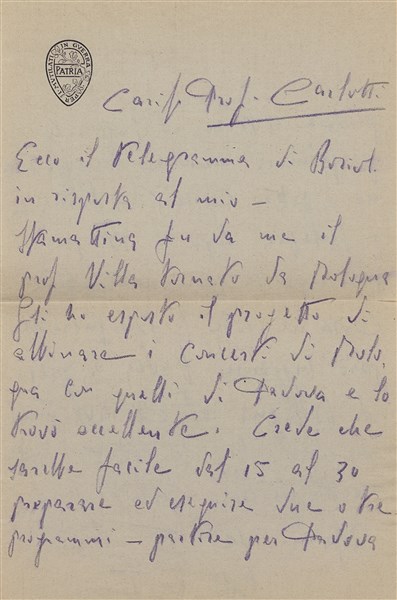 PATRIA
Cariss. Prof. Carlotti
Ecco il telegramma di
in risposta al mio –
Stamattina fu da me il
prof. Villa tornato da Bologna
Gli ho esposto il progetto di
abbinare i concerti di Bolo-
gna con quelli di Padova e lo
trovò eccellente. Crede che
sarebbe facile dal 15 al 30
preparare ed eseguire due o tre
programmi – partire per Padova